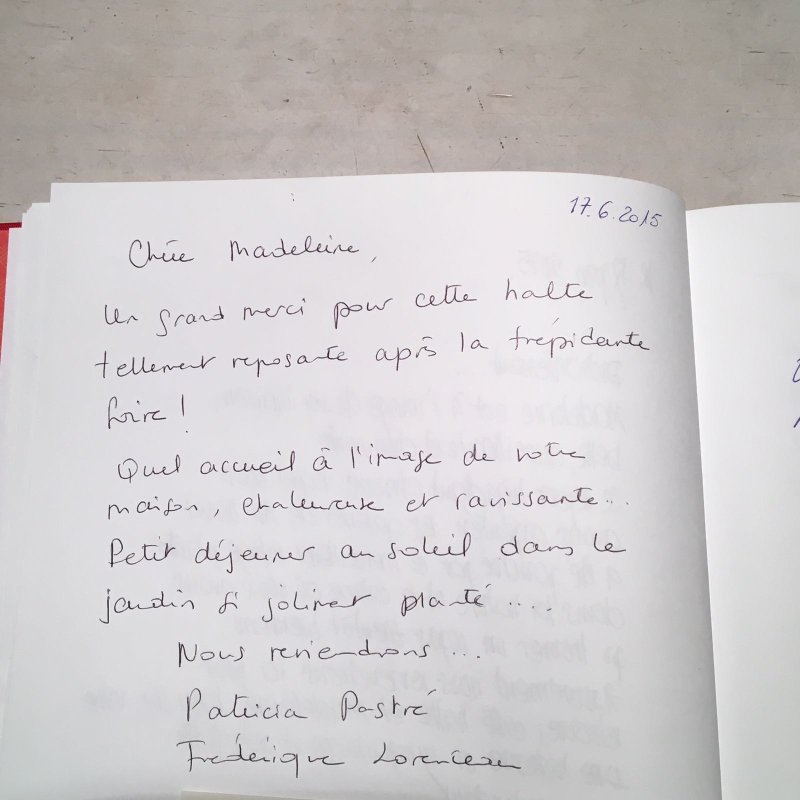 17.6.2015
Chère Madeleine,
Un grand merci pour cette halte
tellement reposante après la trépidante
foire !
Quel accueil à l'image de votre
maison, chaleureuse et ravissante...
Petit déjeuner au soleil dans le
jardin si joliment planté....
Nous reviendrons...
Patricia Pastré
Frédérique Lorenceau